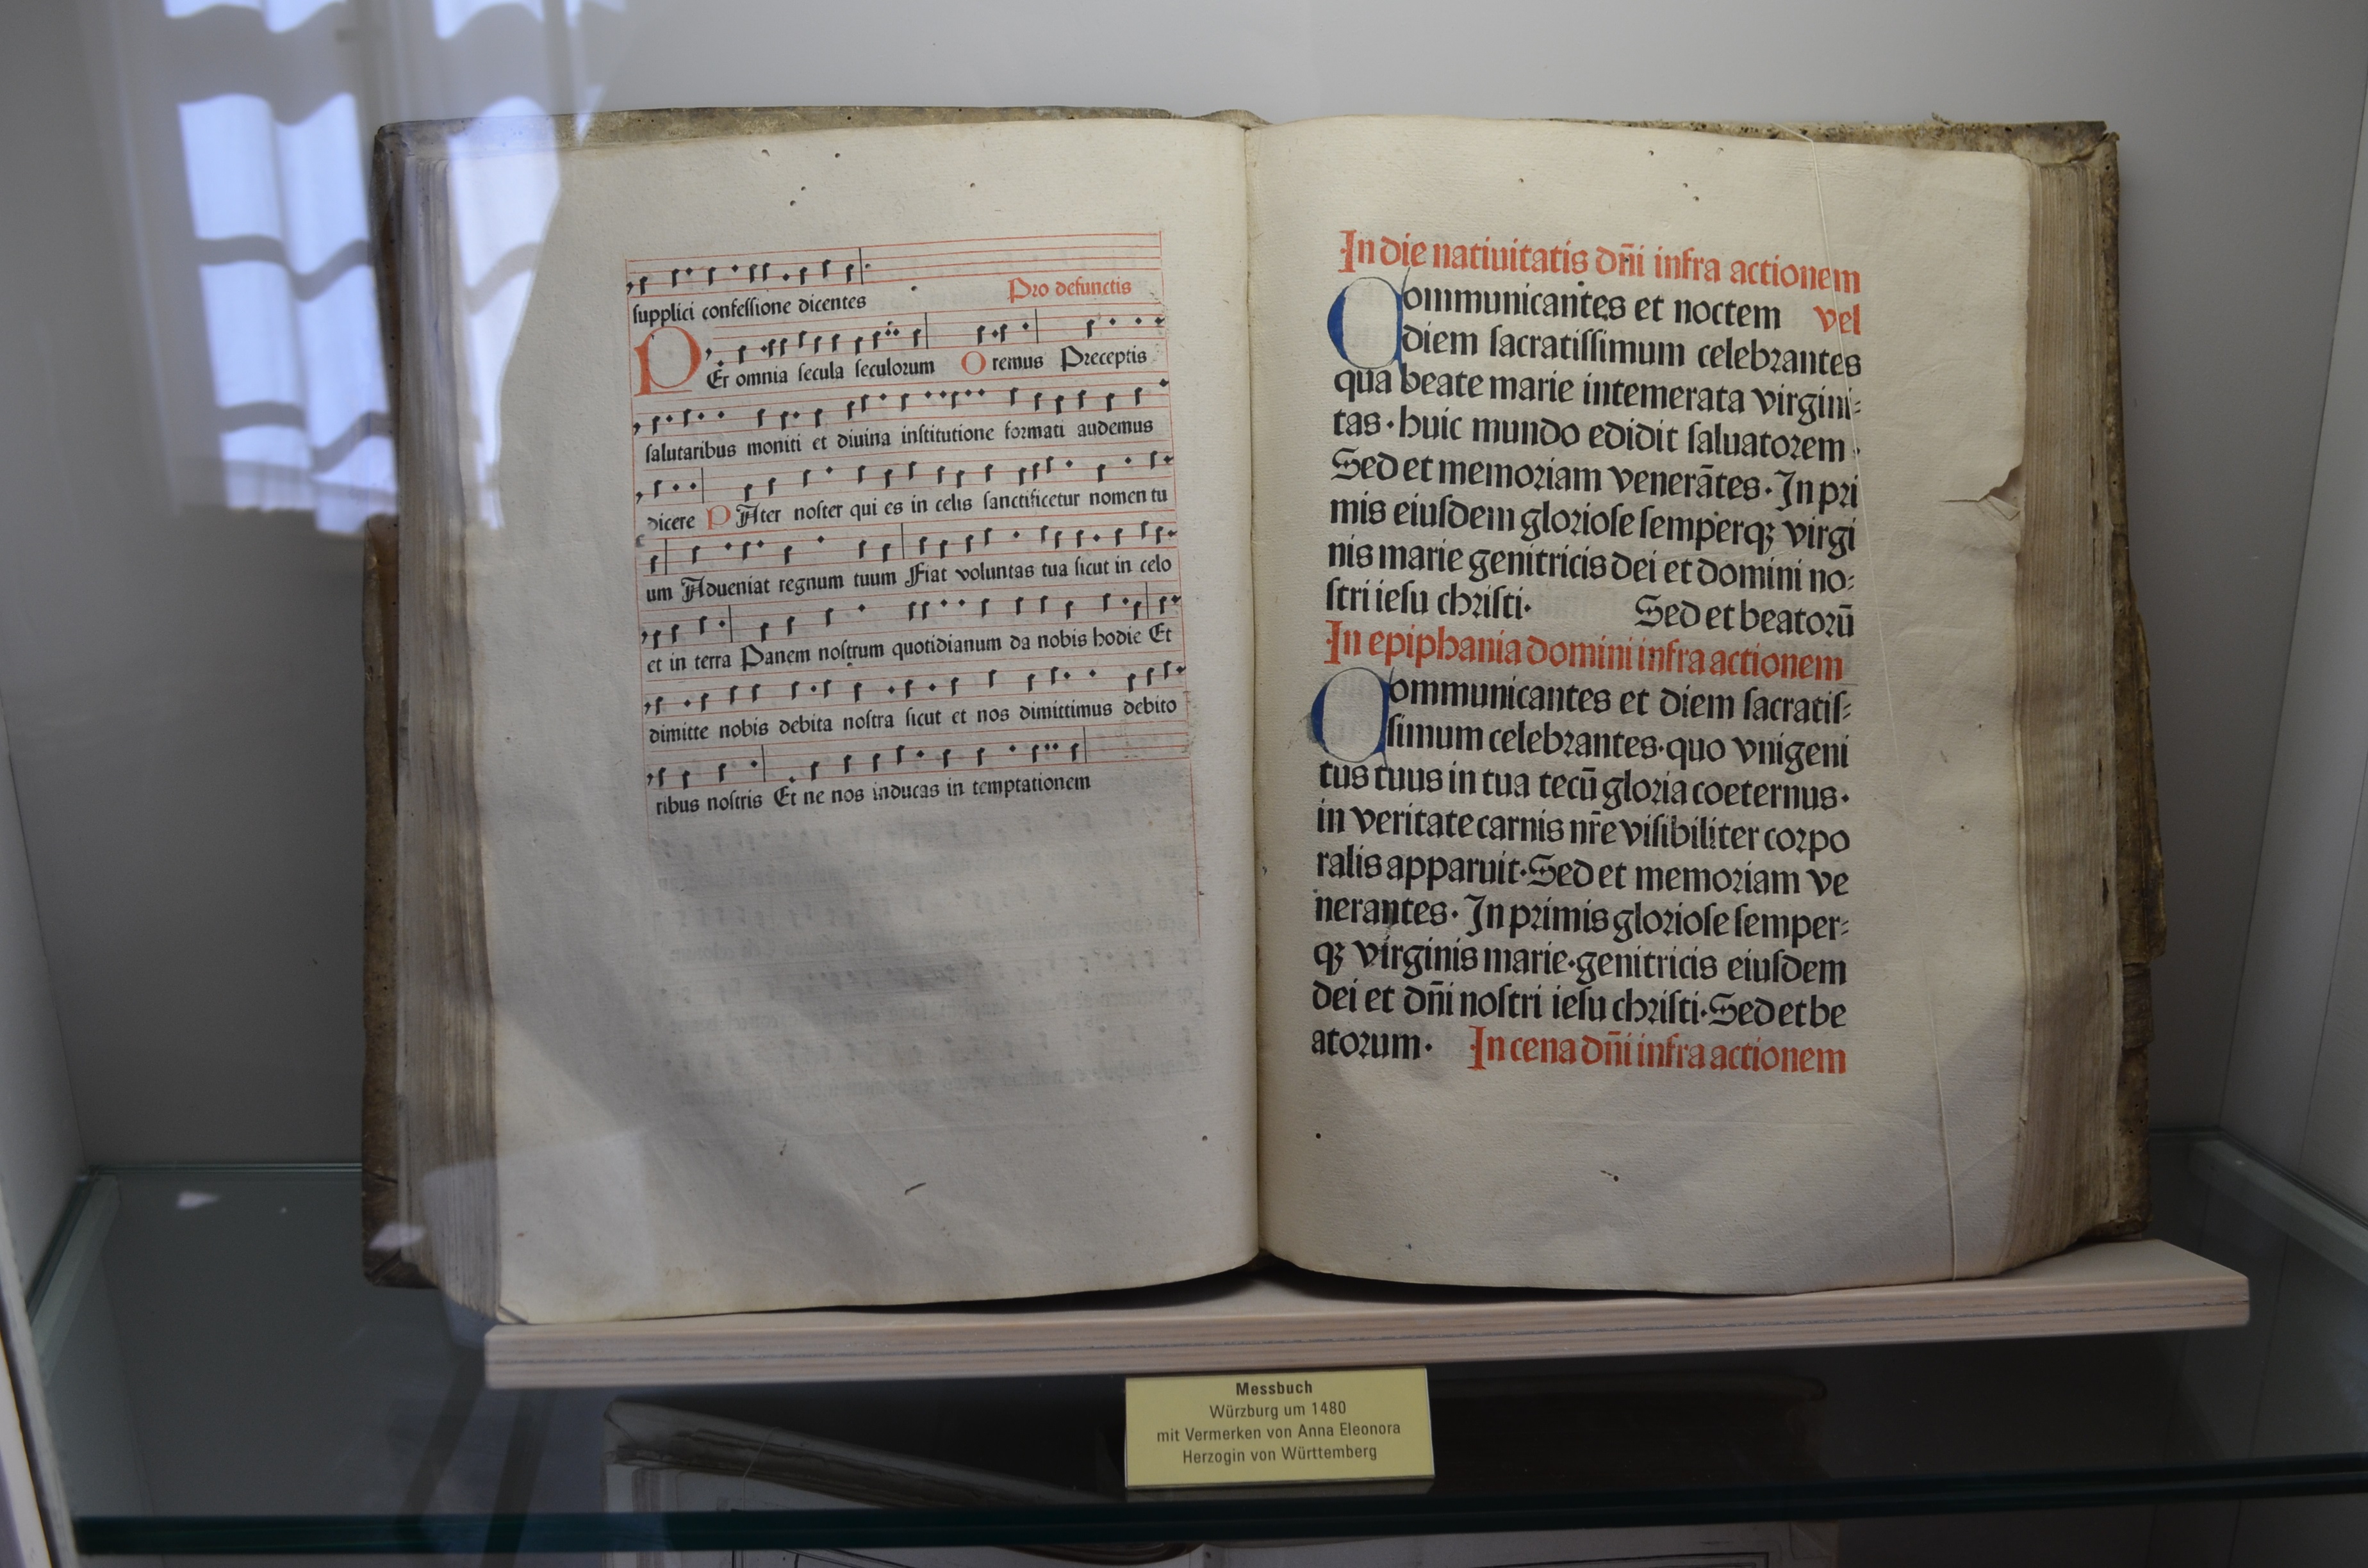 supplici confessione dicentes Pro defunctis
PEr omnia secula seculorum Oremus Preceptis
salutaribus moniti et diuina institutione formati audemus
dicere PAter noster qui es in celis sanctificetur nomen tu
um Adueniat regnum tuum Fiat voluntas tua sicut in celo
et in terra Panem nostrum quotidianum da nobis hodie Et
dimitte nobis debita nostra sicut et nos dimittimus debito
ribus nostris Et ne nos inducas in temptationem
In die natiuitatis dñi infra actionem
Communicantes et noctem vel
diem sacratissimum celebrantes
qua beate marie intemerata virgini⸗
tas · huic mundo edidit saluatorem ·
Sed et memoriam venerātes · In pri
mis eiusdem gloriose semperqꝫ virgi
nis marie genitricis dei et domini no⸗
stri iesu christi · Sed et beatorū
In epiphania domini infra actionem
Communicantes et diem sacratis⸗
simum celebrantes · quo vnigeni
tus tuus in tua tecū gloria coeternus ·
in veritate carnis nr̄e visibiliter corpo
ralis apparuit · Sed et memoriam ve
nerantes · In primis gloriose semper⸗
qꝫ virginis marie · genitricis eiusdem
dei et dñi nostri iesu christi · Sed et be
atorum · In cena dñi infra actionem
Messbuch
Würzburg um 1480
mit Vermerken von Anna Eleonora
Herzogin von Württemberg